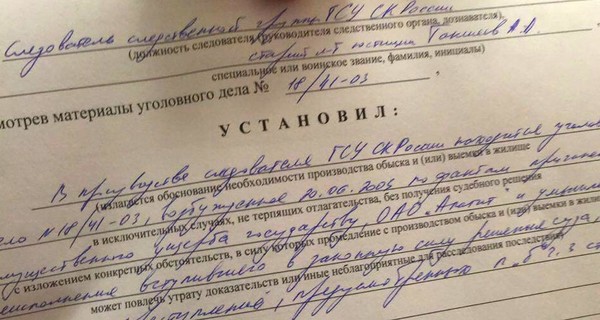 Следователь следственной группы ГСУ СК России
(должность следователя (руководителя следственного органа, дознавателя),
старший л-т юстиции
специальное или воинское звание, фамилия, инициалы)
мотрев материалы уголовного дела № 18/41-03 ,
УСТАНОВИЛ:
В производстве следователя ГСУ СК России находится уголов
(излагается обоснование необходимости производства обыска и (или) выемки в жилище
ло №18/41-03, возбужденное 20.06.2003 по фактам причинен
в исключительных случаях, не терпящих отлагательства, без получения судебного решения
имущественного ущерба государству ОАО "Апатит" и
с изложением конкретных обстоятельств, в силу которых промедление с производством обыска и (или) выемки в жилищ
неисполнения вступившего в законную силу решения суда,
может повлечь утрату доказательств или иные неблагоприятные для расследования последствия)
преступлений, предусмотренных п. "б" ч. 3 ст